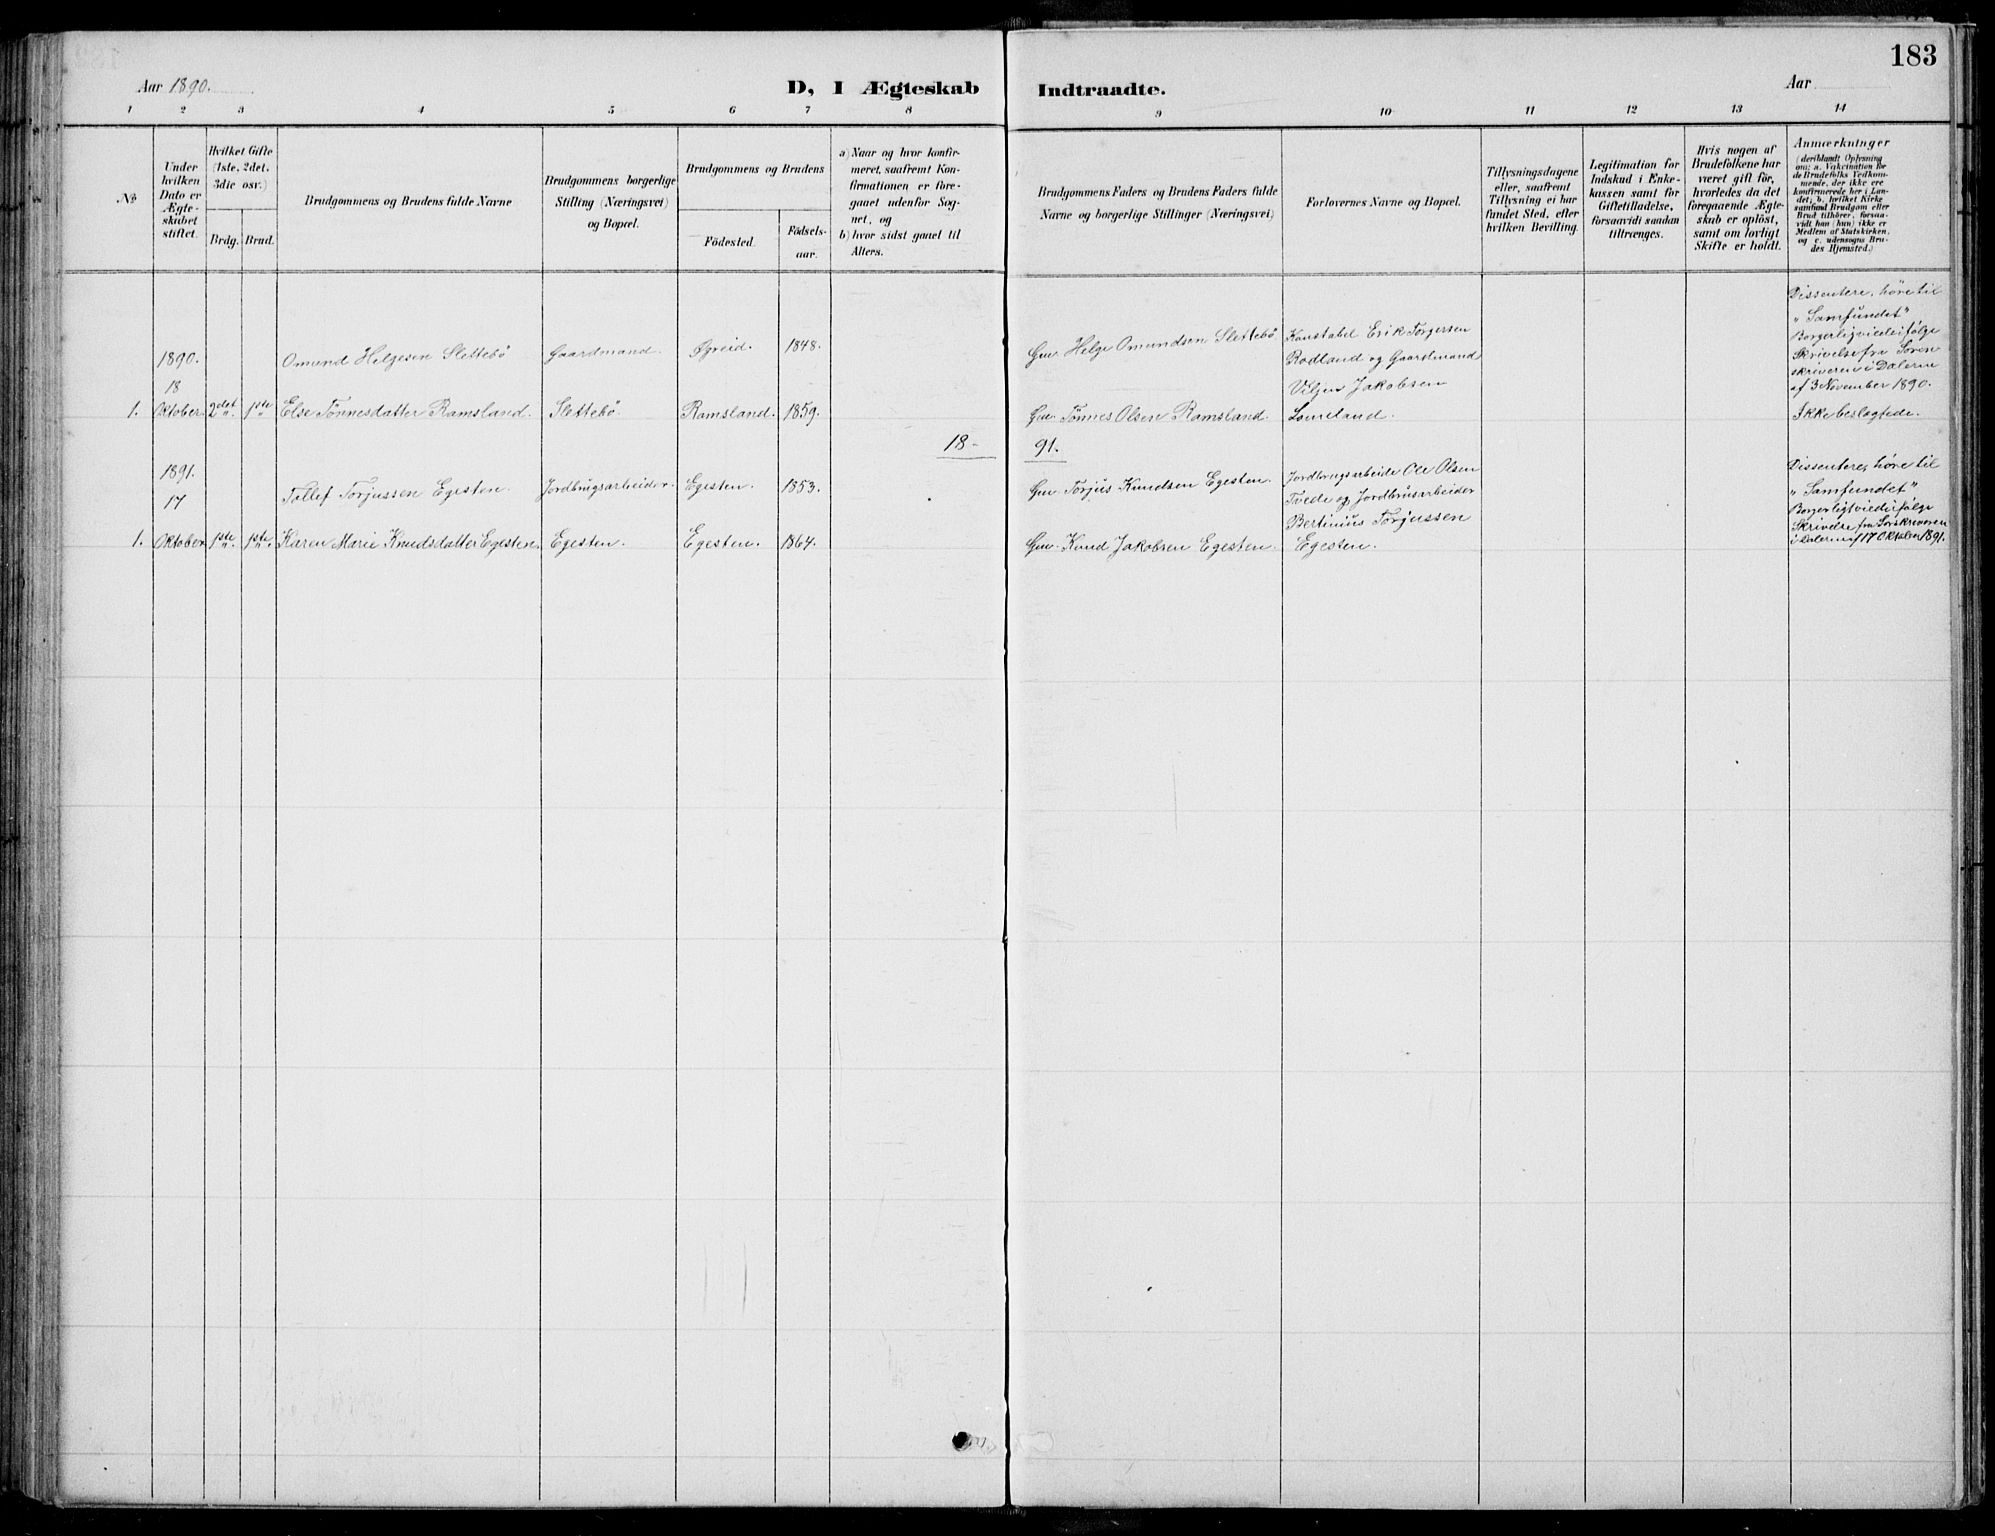 183
Aar 1890.
D, I Ægteskab
Indtraadte.
Aar
1 2 3 4 5 6 7 8 9 10 11 12 13 14
No
Under
hvilken
Dato er
Ægte-
skabet
stiftet.
Hvilket Gifte
(1ste, 2det,
3die osv.)
Brdg. Brud.
Brudgommens og Brudens fulde Navne
Brudgommens borgerlige
Stilling (Næringsvei)
og Bopæl.
Brudgommens og Brudens
Födested.
Födsels-
aar.
a) Naar og hvor konfir-
meret, saafremt Kon-
firmationen er fore-
gaaet udenfor Sog-
net, og
b) hvor sidst gaaet til
Alters.
Brudgommens Faders og Brudens Faders fulde
Navne og borgerlige Stillinger (Næringsvei)
Forlovernes Navne og Bopæl.
Tillysningsdagene
eller, saafremt
Tillysning ei har
fundet Sted, efter
hvilken Bevilling.
Legitimation for
Indskud i Enke-
kassen samt for
Giftetilladelse,
forsaavidt saadan
tiltrænges.
Hvis nogen af
Brudefolkene har
været gift før,
hvorledes da det
foregaaende Ægte-
skab er oplöst,
samt om lovligt
Skifte er holdt.
Anmærkninger
(deriblandt Oplysning
om: a. Vakcination for
de Brudefolks Vedkom-
mende, der ikke ere
konfirmerede her i Lan-
det; b. hvilket Kirke-
samfund Brudgom eller
Brud tilhörer, forsaa-
vidt han (hun) ikke er
Medlem af Statskirken,
og c. udensogns Bru-
des Hjemsted.)
1890.
18
1. Oktober. 2det 1ste
Omund Helgesen Slettebö Gaardmand. Øgreid. 1848.
Else Tönnesdatter Ramsland. Slettebö. Ramsland. 1859.
Gm. Helge Omundsen Slettebö
Gm. Tönnes Olsen Ramsland.
Konstabel Erik Torgersen
Rodland og Gaardmand
Viljen Jakobsen
Laureland.
Dissentere, höre til
"Samfundet"
Borgerlig viede ifölge
Skrivelse fra Soren-
skriveren i Dalerne
af 3 November 1890.
Ikke beslægtede.
18- 91.
1891.
17
1. Oktober 1ste 1ste
Tollef Torjussen Egesten. Jordbrugsarbeider. Egesten. 1853.
Karen Marie Knudsdatter Egesten. Egesten. Egesten. 1864.
Gm. Torjus Knudsen Egesten.
Gm. Knud Jakobsen Egesten.
Jordbrugsarbeide Ole Olsen
Tvede og Jordbrusarbeider
Bertinius Torjussen
Egesten.
Dissentere, höre til
"Samfundet"
Borgerligt viede ifölge
Skrivelse fra Sorskriveren
i Dalerne af 17 Oktober 1891.